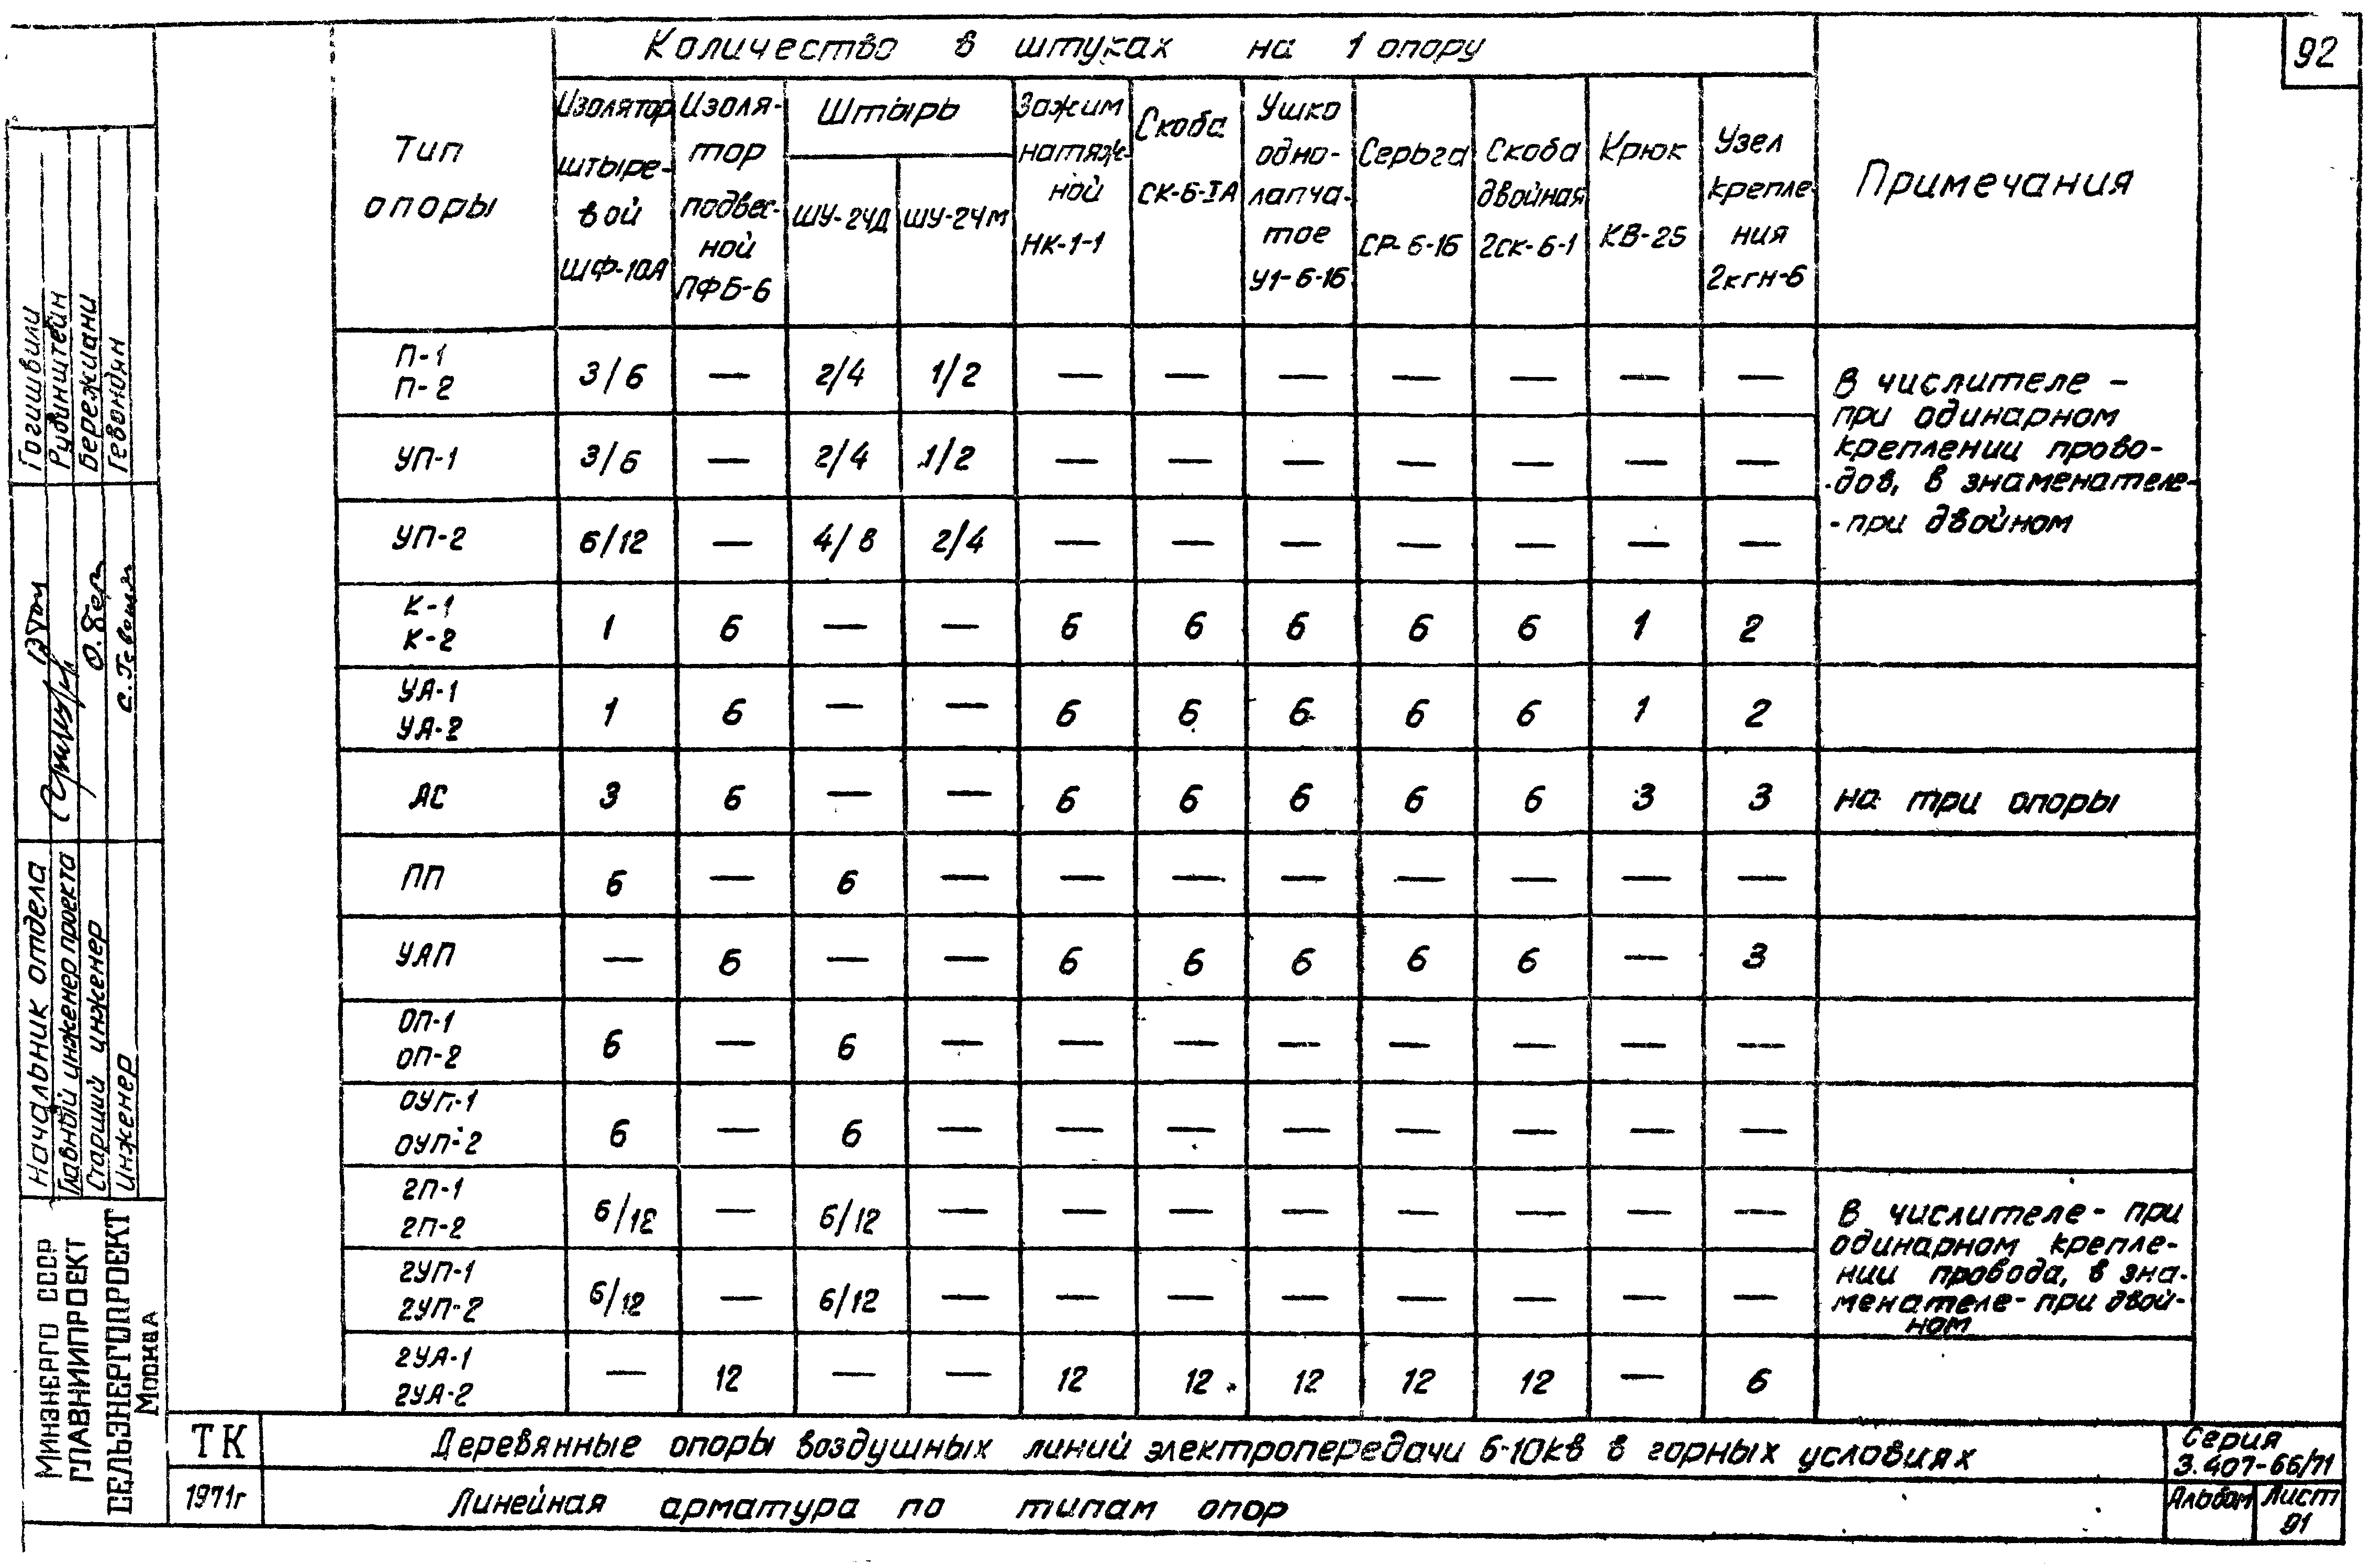 92
Количество в штуках на 1 опору
Тип опоры
Изолятор штыревой ШФ-10А
Изоля-тор подвес-ной ПФБ-6
Штырь
ШУ-24Д
ШУ-24М
Зажим натяж-ной НК-1-1
Скоба СК-6-IА
Ушко одно-лапча-тое У1-6-16
Серьга СР-6-16
Скоба двойная 2СК-6-1
Крюк КВ-25
Узел крепле-ния 2кгн-6
Примечания
П-1
П-2 3/6 — 2/4 1/2 — — — — — — —
УП-1 3/6 — 2/4 1/2 — — — — — — —
УП-2 6/12 — 4/8 2/4 — — — — — — —
В числителе -
при одинарном
креплении прово-
дов, в знаменателе-
-при двойном
К-1
К-2 1 6 — — 6 6 6 6 6 1 2
УА-1
УА-2 1 6 — — 6 6 6 6 6 1 2
АС 3 6 — — 6 6 6 6 6 3 3 на три опоры
ПП 6 — 6 — — — — — — — —
УАП — 6 — — 6 6 6 6 6 — 3
ОП-1
ОП-2 6 — 6 — — — — — — — —
ОУП-1
ОУП-2 6 — 6 — — — — — — — —
2П-1
2П-2 6/12 — 6/12 — — — — — — — —
2УП-1
2УП-2 6/12 — 6/12 — — — — — — — —
В числителе- при
одинарном крепле-
нии провода, в зна-
менателе- при двой-
ном
2УА-1
2УА-2 — 12 — — 12 12 12 12 12 — 6
ТК
Деревянные опоры воздушных линий электропередачи 6-10кв в горных условиях
Серия
3.407-66/71
1971г
Линейная арматура по типам опор
Альбом
Лист
91
Гогишвили
Рубинштейн
Бережиани
Гевондян
О. Бер
Начальник отдела
Главный инженер проекта
Старший инженер
Инженер
Минэнерго СССР
ГЛАВНИИПРОЕКТ
СЕЛЬЭНЕРГОПРОЕКТ
Москва